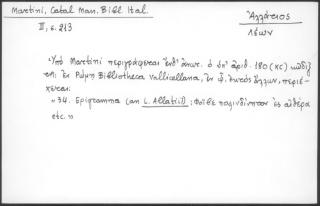 Martini, Catal. Man. Bibl. Ital.
II, σ. 213
Ἀλλάτιος
Λέων
Ὑπὸ Martini περιγράφεται ἐνθ' ἀνωτ. ὁ ὑπ' ἀριθ. 180 (XC)
ἐν Ρώμῃ Bibliotheca Vallicellana, ἐν ᾧ, ἐκτὸς ἄλλων, περιέ-
χεται:
«34. Epigramma (an L. Allatii): Φοῖβε παλινδίνητον ἐς αἰθέρα
etc.»